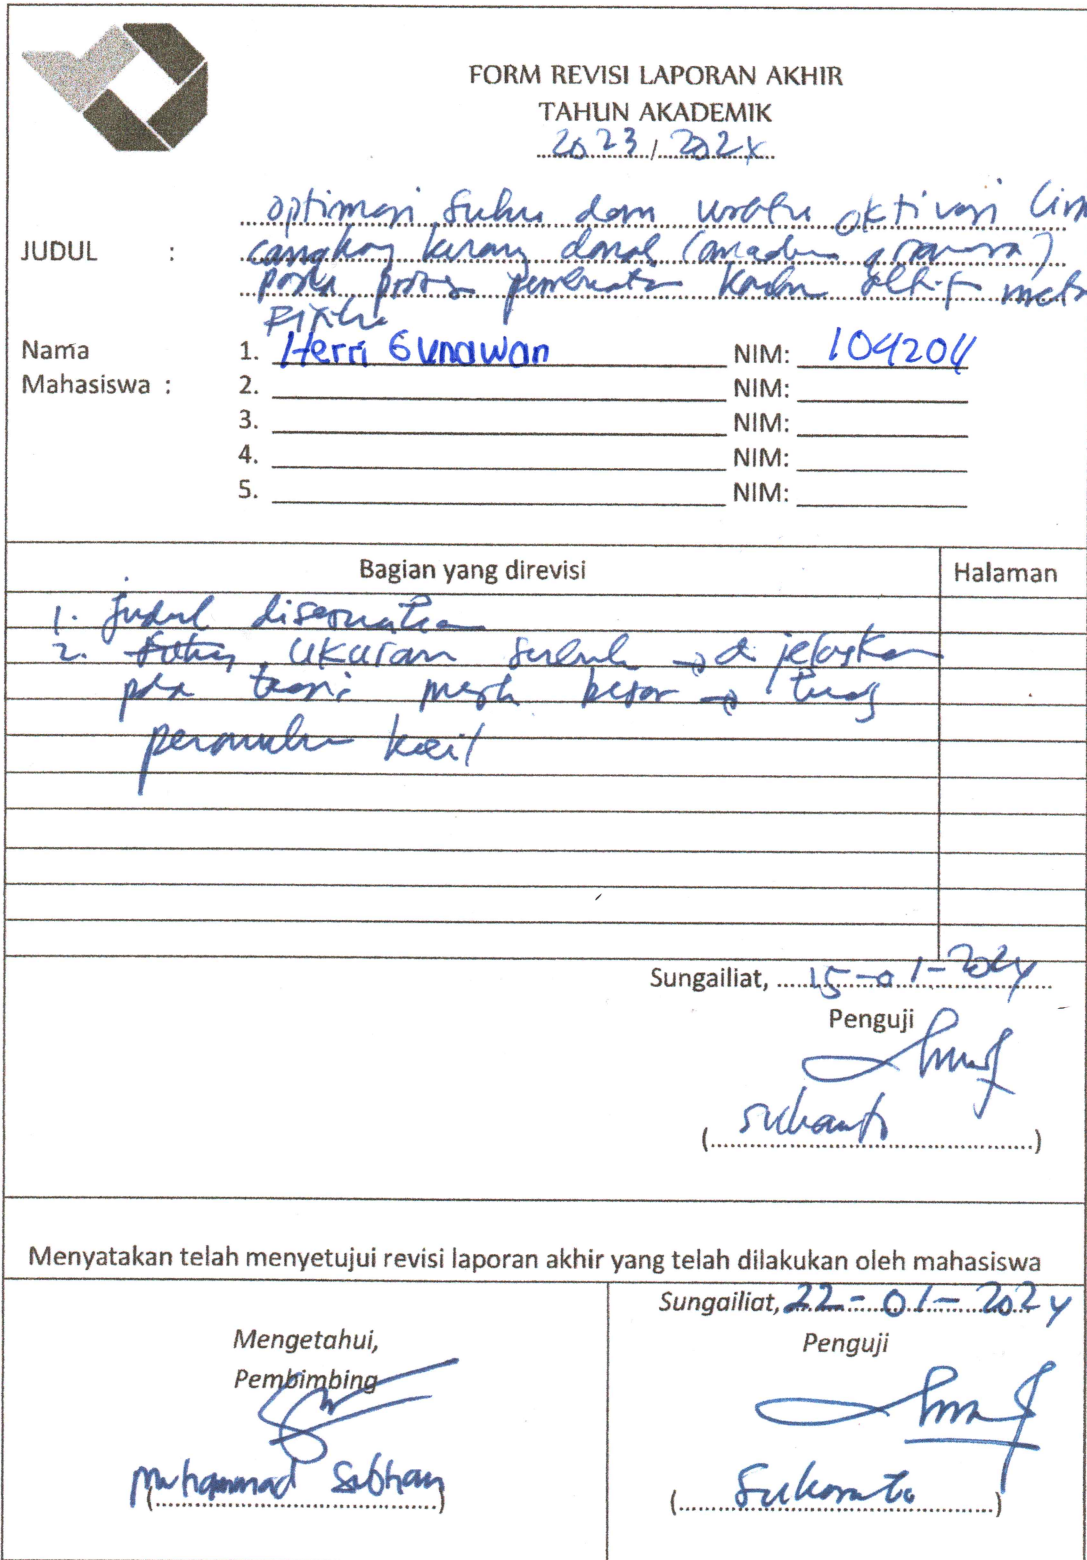 FORM REVISI LAPORAN AKHIR
TAHUN AKADEMIK
2023 / 2024
JUDUL :
optimasi suhu dan waktu aktivasi
cangkang kerang
pada proses pembuatan
Nama
Mahasiswa :
1. Herri Gunawan NIM: 104204
2. NIM:
3. NIM:
4. NIM:
5. NIM:
Bagian yang direvisi Halaman
1. Judul disesuaikan
2. ukuran serbuk → dijelaskan
pada teori mesh besar → luas
kecil
Sungailiat, 15-01-2024
Penguji
(Sukanto)
Menyatakan telah menyetujui revisi laporan akhir yang telah dilakukan oleh mahasiswa
Mengetahui,
Pembimbing
(Muhammad Subhan)
Sungailiat, 22-01-2024
Penguji
(Sukanto)